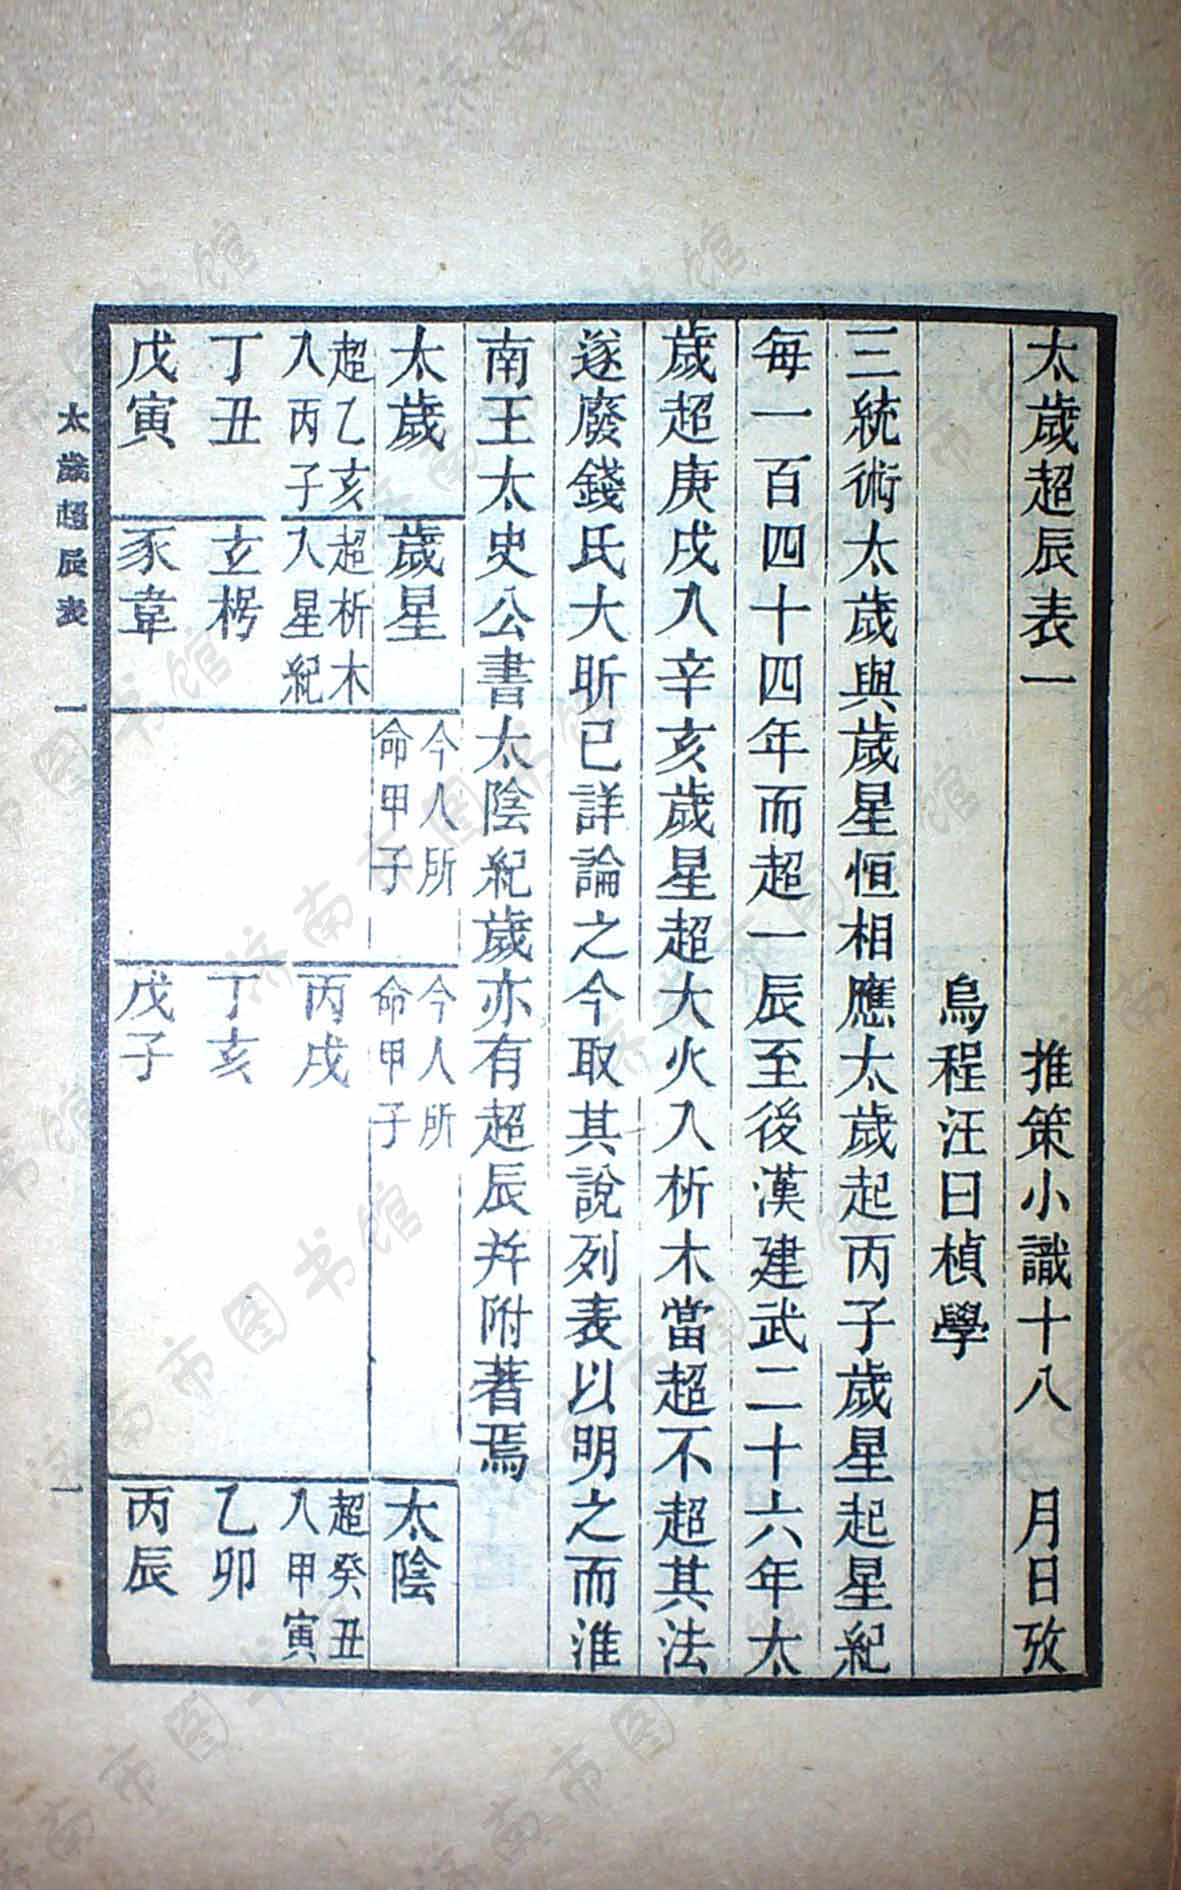 太歲超辰表一　推策小識十八　月日攷
烏程汪曰楨學
三統術太歲與歲星恒相應太歲起丙子歲星起星紀
每一百四十四年而超一辰至後漢建武二十六年太
歲超庚戌入辛亥歲星超大火入析木當超不超其法
遂廢錢氏大昕已詳論之今取其說列表以明之而淮
南王太史公書太陰紀歲亦有超辰并附著焉
太歲　歲星　今人所命甲子　今人所命甲子　太陰
超乙亥入丙子　超析木入星紀　丙戌　超癸丑入甲寅
丁丑　玄枵　丁亥　乙卯
戊寅　豕韋　戊子　丙辰
太歲超辰表一　一
济南市图书馆